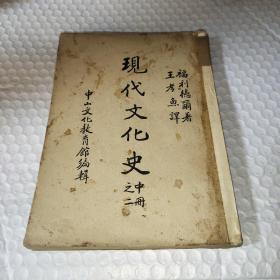 福利德爾著
王孝魚譯
現代文化史
中冊
之二
中山文化教育館編輯